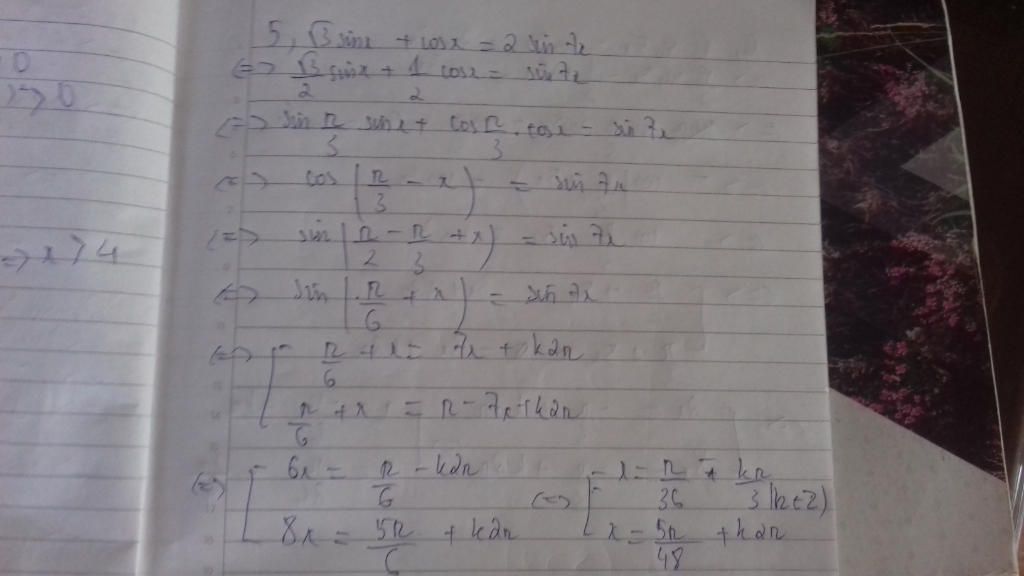 0
=> 0
=> x > 4
5, √3 sinx + cosx = 2 sin 7x
<=> √3/2 sinx + 1/2 cosx = sin7x
<=> sin π/3 sinx + cos π/3 . cosx = sin 7x
<=> cos (π/3 - x) = sin 7x
<=> sin (π/2 - π/3 + x) = sin 7x
<=> sin (π/6 + x) = sin 7x
<=> [ π/6 + x = 7x + k2π
π/6 + x = π - 7x + k2π
<=> [ 6x = π/6 - k2π <=> [ x = π/36 - kπ/3 (k∈Z)
8x = 5π/6 + k2π x = 5π/48 + k2π